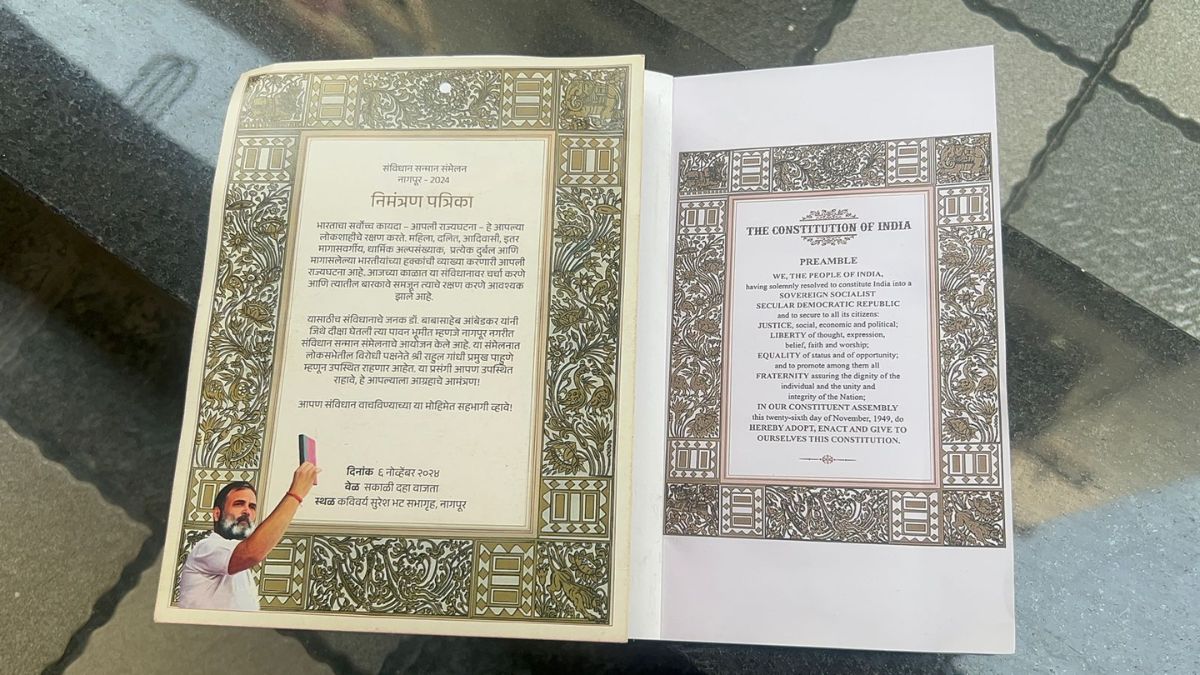 संविधान सन्मान संमेलन
नागपूर - 2024
निमंत्रण पत्रिका
भारताचा सर्वोच्च कायदा - आपली राज्यघटना - हे आपल्या
लोकशाहीचे रक्षण करते. महिला, दलित, आदिवासी, इतर
मागासवर्गीय, धार्मिक अल्पसंख्याक, प्रत्येक दुर्बल आणि
मागासलेल्या भारतीयांच्या हक्कांची व्याख्या करणारी आपली
राज्यघटना आहे. आजच्या काळात या संविधानावर चर्चा करणे
आणि त्यातील बारकावे समजून त्याचे रक्षण करणे आवश्यक
झाले आहे.
यासाठीच संविधानाचे जनक डॉ. बाबासाहेब आंबेडकर यांनी
जिथे दीक्षा घेतली त्या पावन भूमीत म्हणजे नागपूर नगरीत
संविधान सन्मान संमेलनाचे आयोजन केले आहे. या संमेलनात
लोकसभेतील विरोधी पक्षनेते श्री राहुल गांधी प्रमुख पाहुणे
म्हणून उपस्थित राहणार आहेत. या प्रसंगी आपण उपस्थित
राहावे, हे आपल्याला आग्रहाचे आमंत्रण!
आपण संविधान वाचविण्याच्या या मोहिमेत सहभागी व्हावे!
दिनांक ६ नोव्हेंबर २०२४
वेळ सकाळी दहा वाजता
स्थळ कविवर्य सुरेश भट सभागृह, नागपूर
THE CONSTITUTION OF INDIA
PREAMBLE
WE, THE PEOPLE OF INDIA,
having solemnly resolved to constitute India into a
SOVEREIGN SOCIALIST
SECULAR DEMOCRATIC REPUBLIC
and to secure to all its citizens:
JUSTICE, social, economic and political;
LIBERTY of thought, expression,
belief, faith and worship;
EQUALITY of status and of opportunity;
and to promote among them all
FRATERNITY assuring the dignity of the
individual and the unity and
integrity of the Nation;
IN OUR CONSTITUENT ASSEMBLY
this twenty-sixth day of November, 1949, do
HEREBY ADOPT, ENACT AND GIVE TO
OURSELVES THIS CONSTITUTION.